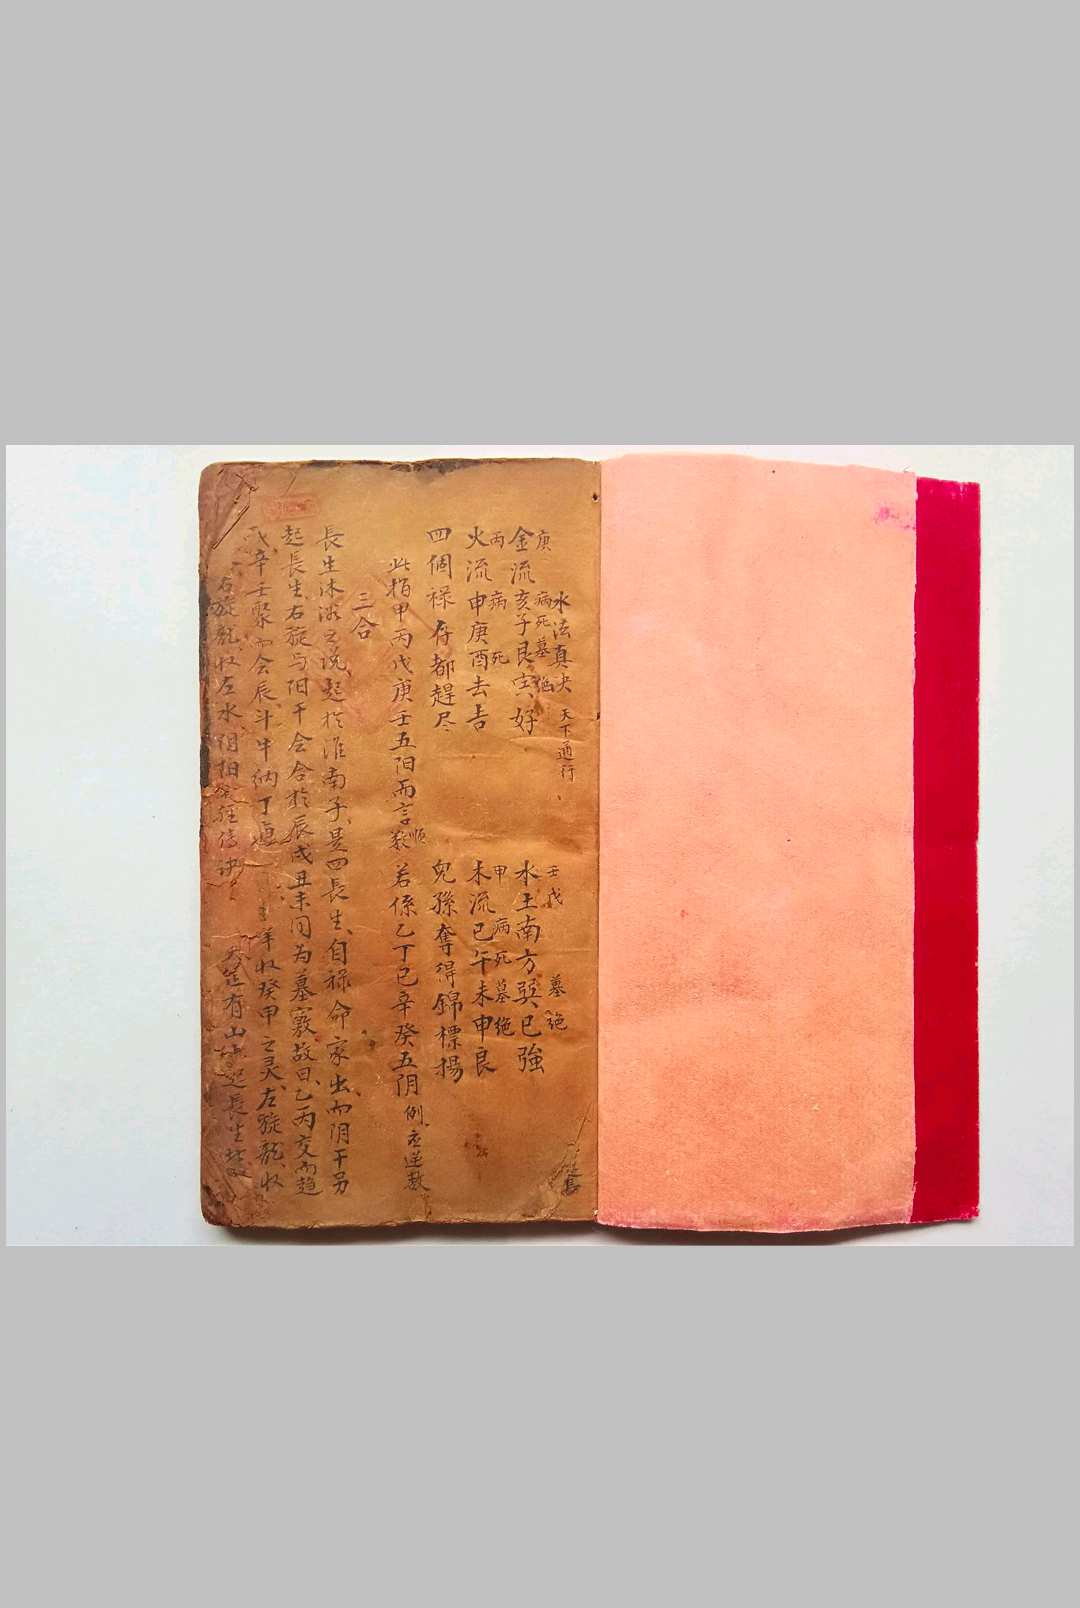 水法真夬 天下通行、
庚 病死墓絕 壬戊 墓绝
金流亥子艮寅好 水土南方巽巳強
丙 病 死 甲 病死墓绝
火流申庚酉去吉 木流巳午未申良
四個禄存都趕尽 兒孫奪得錦標揚
此指甲丙戊庚壬五阳而言 順数 若係乙丁己辛癸五阴例应逆数
三合
長生沐浴之说、起於淮南子、是四長生、自禄命家出、而阴干另
起長生、右旋与阳干会合於辰戌丑未同为墓竅故曰、乙丙交而趋
戌、辛壬聚而会辰、斗牛纳丁 羊收癸甲之灵、左旋龍、收
右旋龍收左水、阴阳 傳诀 有山 起長生